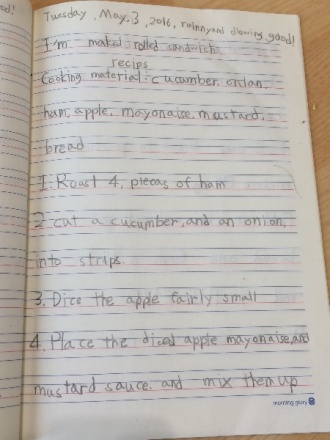 d!
Tuesday, May. 3, 2016, rainny and blowing, good!
I'm maked rolled sandwich
recips
Cooking material: cucumber. onion.
ham, apple, mayonaise, mustard,
bread
1. Roast 4, pieces of ham
2 cut a cucumber, and an onion,
into strips.
3. Dice the apple fairly small
4. Place the diced apple mayonaise, and
mustard sauce. and mix them up
morning glory